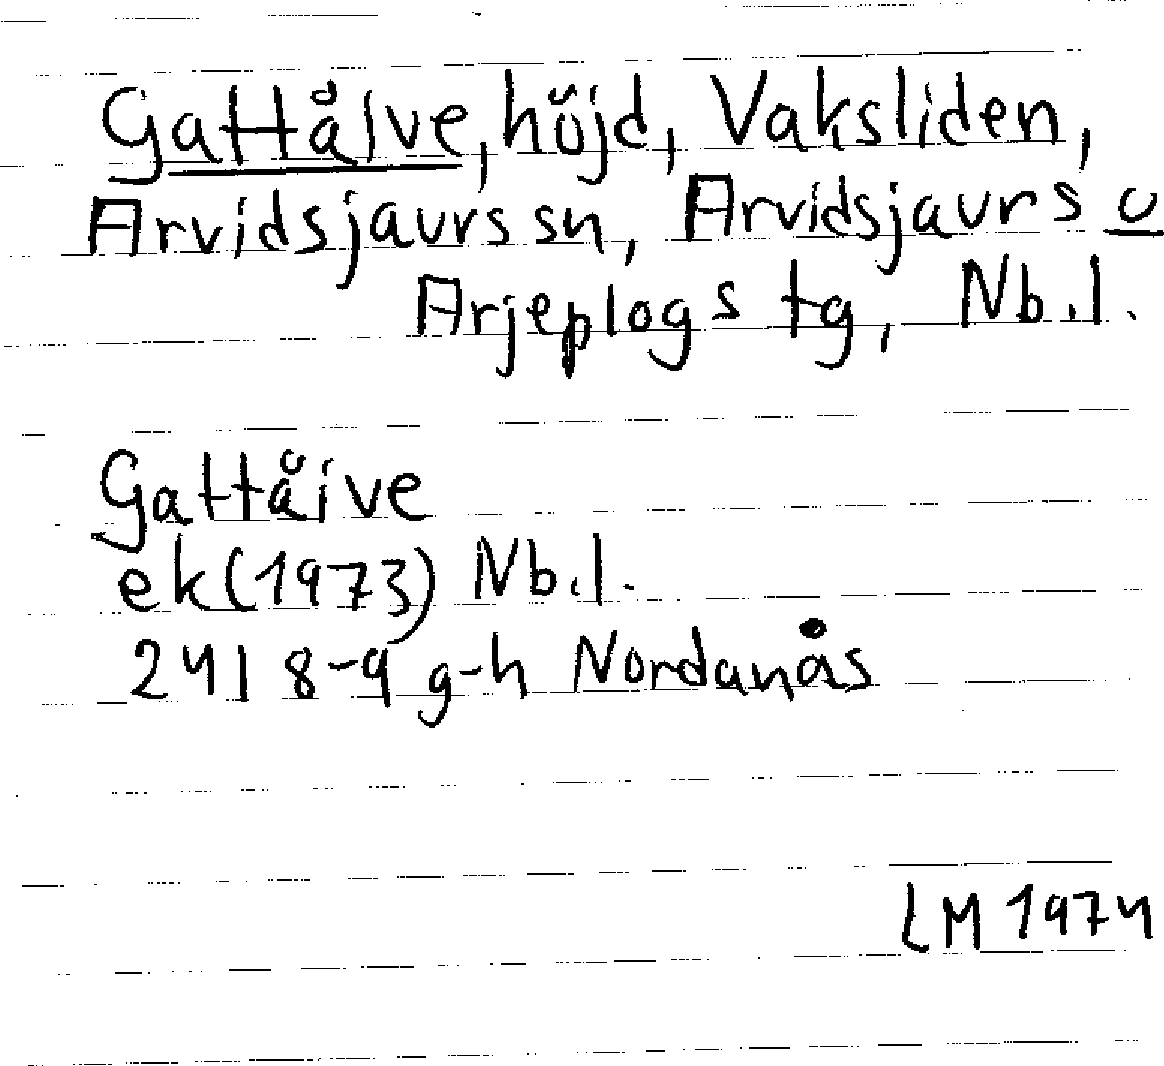 Gattåive, höjd, Vaksliden,
Arvidsjaurs sn, Arvidsjaurs o
Arjeplogs tg, Nb.l.
Gattåive
ek (1973) Nb.l.
24I 8-9 g-h Nordanås
LM 1974